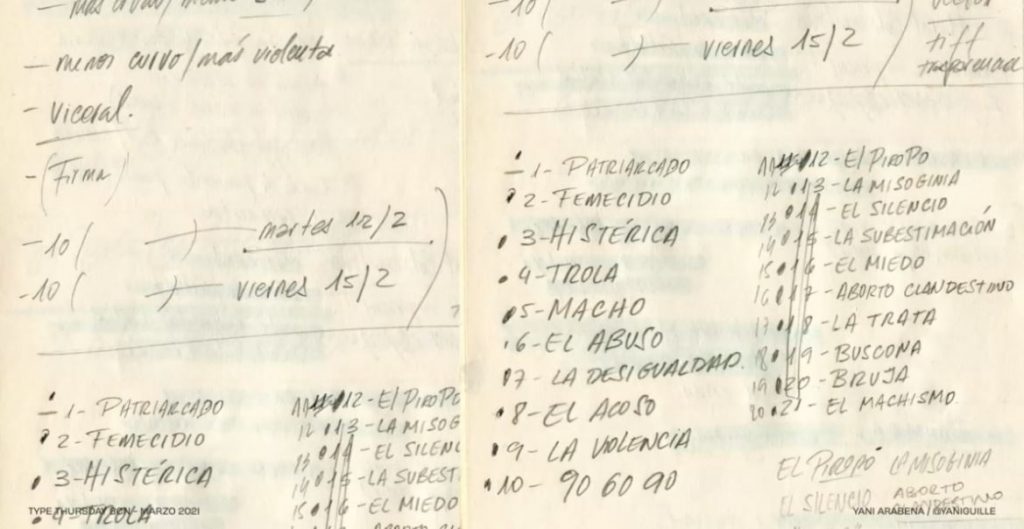 — menor curvo/más violenta
- viceral.
- (Firma)
-10 ( ) martes 12/2
-10 ( ) viernes 15/2
1- PATRIARCADO
2- FEMECIDIO
3- HISTÉRICA
4- TROLA
11 12- El PIROPO
12 13- LA MISOG
13 14 - EL SILENC
14 15- LA SUBEST
15 16 - EL MIEDO
TYPE THURSDAY BCN - MARZO 2021
-10 (
-10 ( ) viernes 15/2
tiff
1- PATRIARCADO
2- FEMECIDIO
3- HISTÉRICA
4- TROLA
5- MACHO
6- EL ABUSO
7- LA DESIGUALDAD
8- EL ACOSO
9- LA VIOLENCIA
10- 90 60 90
11 12- El PIROPO
12 13- LA MISOGINIA
13 14 - EL SILENCIO
14 15- LA SUBESTIMACIÓN
15 16 - EL MIEDO
16 17 - ABORTO CLANDESTINO
17 18 - LA TRATA
18 19 - BUSCONA
19 20 - BRUJA
20 21 - EL MACHISMO.
EL PIROPO LA MISOGINIA
EL SILENCIO ABORTO CLANDESTINO
YANI ARABENA / @YANIGUILLE